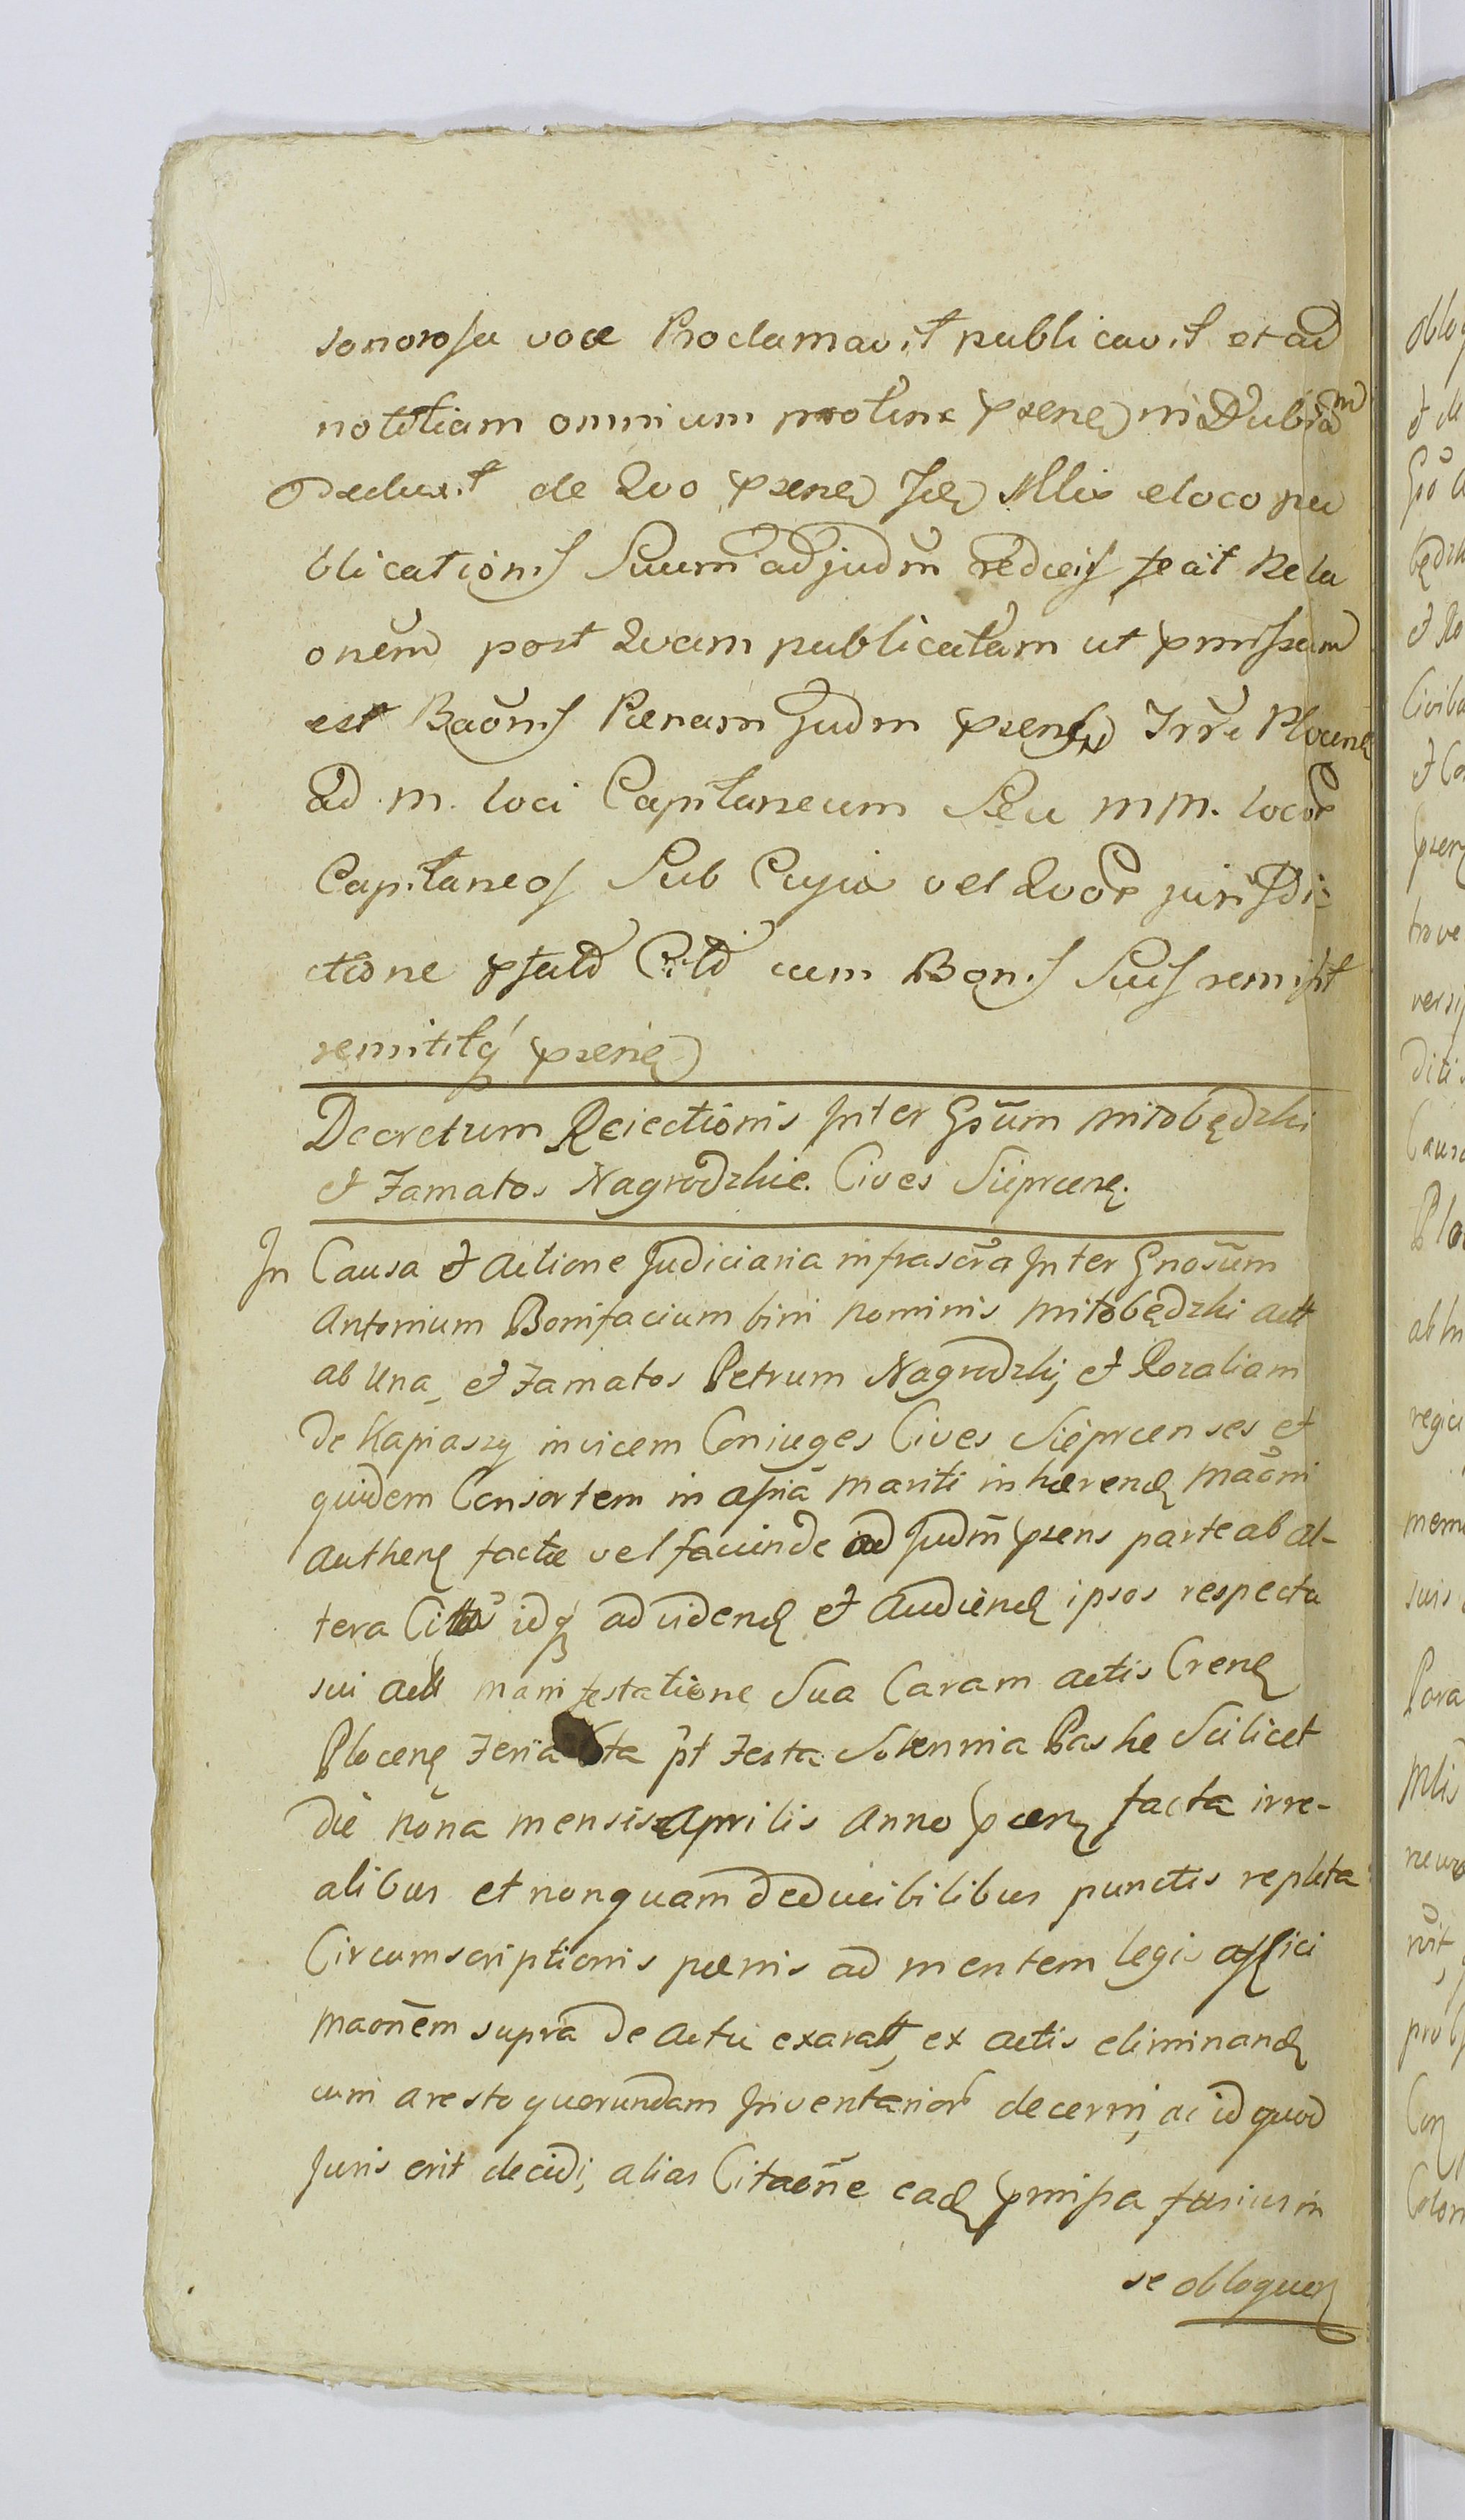 sonorosa voce Proclamavit publicavit et ad
notitiam omnium protunc psene in Dubiam
Deduxit de Quo psene Jdę Mlis e loco pu
blicationis Suum ad judm redeis fecit Rela
onem post Quam publicatam ut pmissum
est Baonis Pænam Judm psens Irre Plocenę
Ad M. loci Capitaneum Seu MM. locor
Capitaneos Sub Cujus vel Quor jurisdi:
ctione psatd Cittd cum Bonis Suis remisit
remititq psenę
Decretum Reiectionis Inter Gsum Mitobędzki
et Famatos Nagrodzkie. Cives Sieprcenę.
In Causa et Actione Judiciaria infrascra Inter Gnosum
Antonium Bonifacium bini nominis Mitobędzki actt
ab Una, et Famatos Petrum Nagrodzkij et Rozaliam
de Kapiaszy invicem Coniuges Cives Sieprcenses et
quidem Consortem in assia mariti inhærendę Maoni
Authenę factæ vel faciendæ ad Judm psens parte ab al-
tera Citto idq ad videndę et Audiendę ipsos respectu
sui actt manifestatione Sua Caram actis Crenę
Plocenę Feria ta pt Festa Solennia Pashe Scilicet
die nona mensis Aprilis Anno psenę facta irre-
alibus et nonquam deducibilibus punctis repleta
Circumscriptionis pænis ad mentem legis affici
maonem supra de actu exaratt, ex actis eliminandę
cum aresto quorundam Inventarior decerni, ac id quod
Juris erit decidi, alias Citaone eadę pmissa fusius in
se obloquen